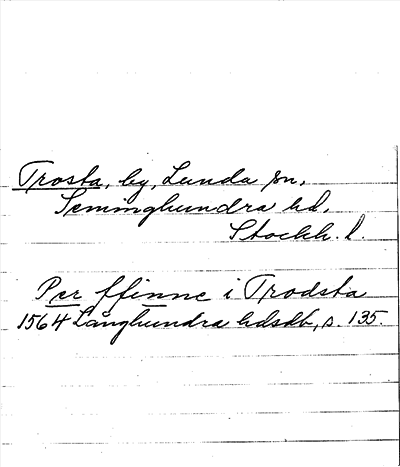 Trosta, by, Lunda sn,
Seminghundra hd,
Stockh. l.
Per ffinne i Trodsta
1564 Långhundra hdsdb, s. 135.